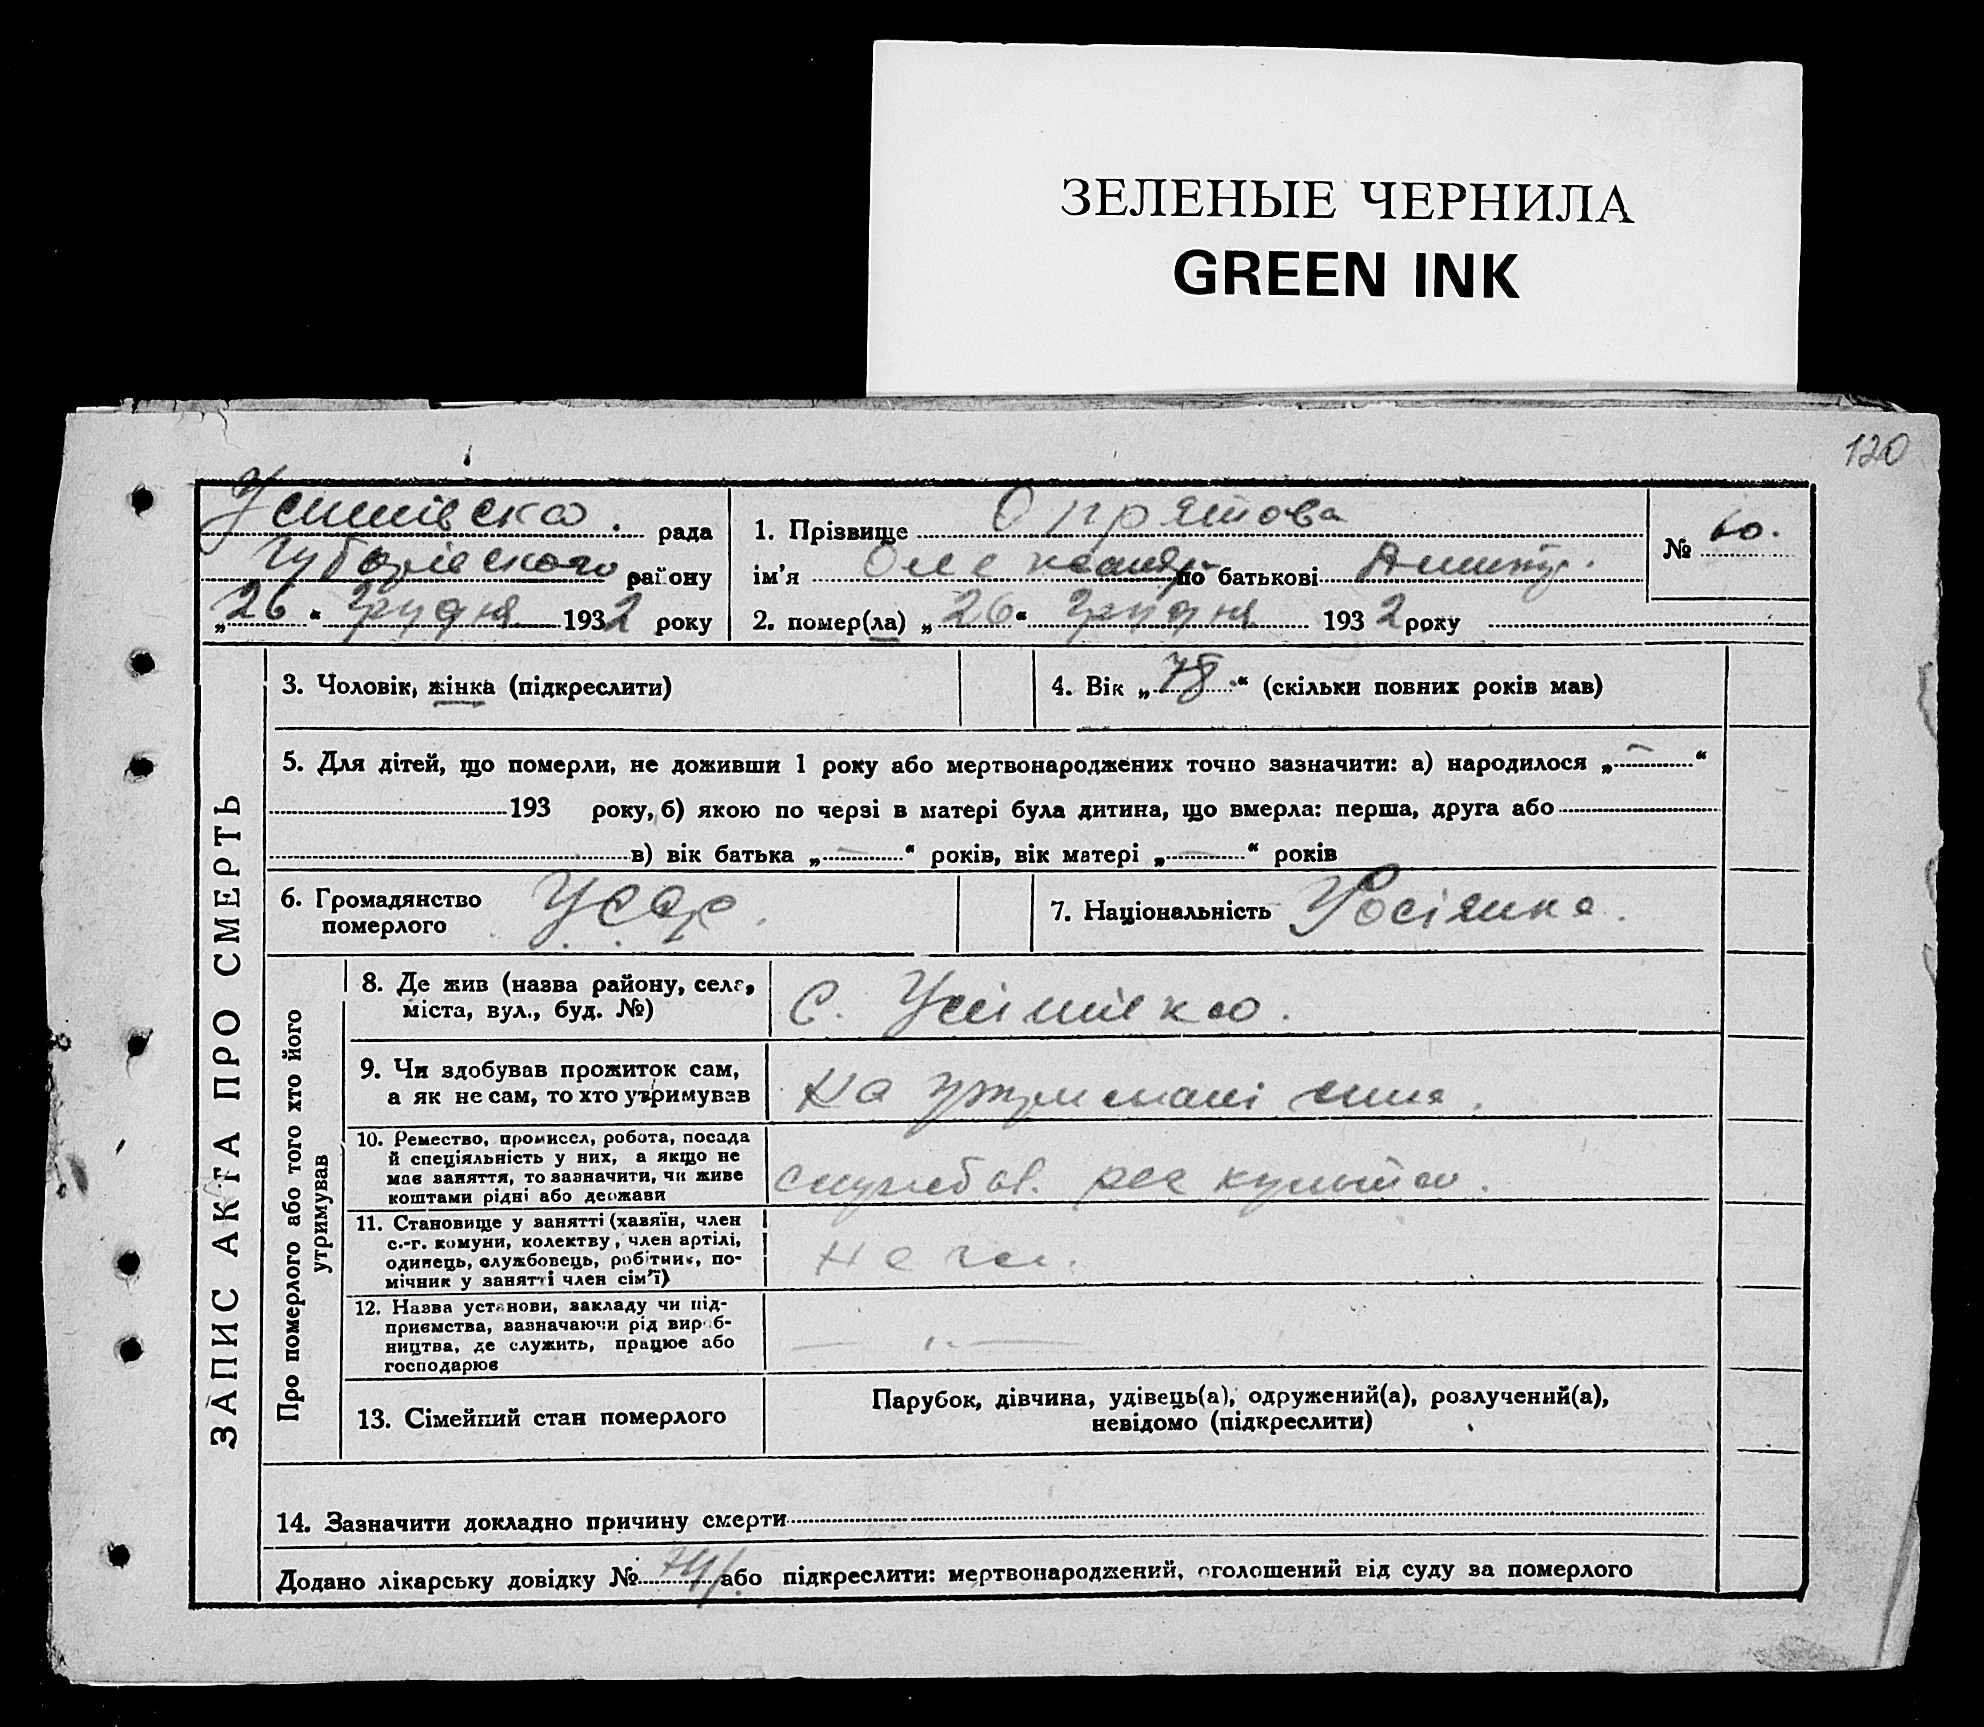 ЗЕЛЕНЫЕ ЧЕРНИЛА
GREEN INK
120
рада
району
„26“ грудня 1932 року
1. Прізвище Опрятова
ім’я по батькові
2. помер(ла) „26“ грудня 1932 року
№ 60.
ЗАПИС АКТА ПРО СМЕРТЬ
3. Чоловік, жінка (підкреслити)
4. Вік „78“ (скільки повних років мав)
5. Для дітей, що померли, не доживши 1 року або мертвонароджених точно зазначити: а) народилося „—“
193 року, б) якою по черзі в матері була дитина, що вмерла: перша, друга або
в) вік батька „—“ років, вік матері „—“ років
6. Громадянство
померлого
УСРР.
7. Національність Росіянка.
Про померлого або того хто його
утримував
8. Де жив (назва району, села,
міста, вул., буд. №)
с.
9. Чи здобував прожиток сам,
а як не сам, то хто утримував
на утриманні сина.
10. Ремество, промисел, робота, посада
й спеціяльність у них, а якщо не
має заняття, то зазначити, чи живе
коштами рідні або держави
служебов. рел культа.
11. Становище у занятті (хазяїн, член
с.-г. комуни, колективу, член артілі,
одинець, службовець, робітник, по-
мічник у занятті член сім’ї)
12. Назва установи, закладу чи під-
приємства, зазначаючи рід вироб-
ництва, де служить, працює або
господарює
— „ —
13. Сімейний стан померлого
Парубок, дівчина, удівець(а), одружений(а), розлучений(а),
невідомо (підкреслити)
14. Зазначити докладно причину смерти
Додано лікарську довідку № або підкреслити: мертвонароджений, оголошений від суду за померлого